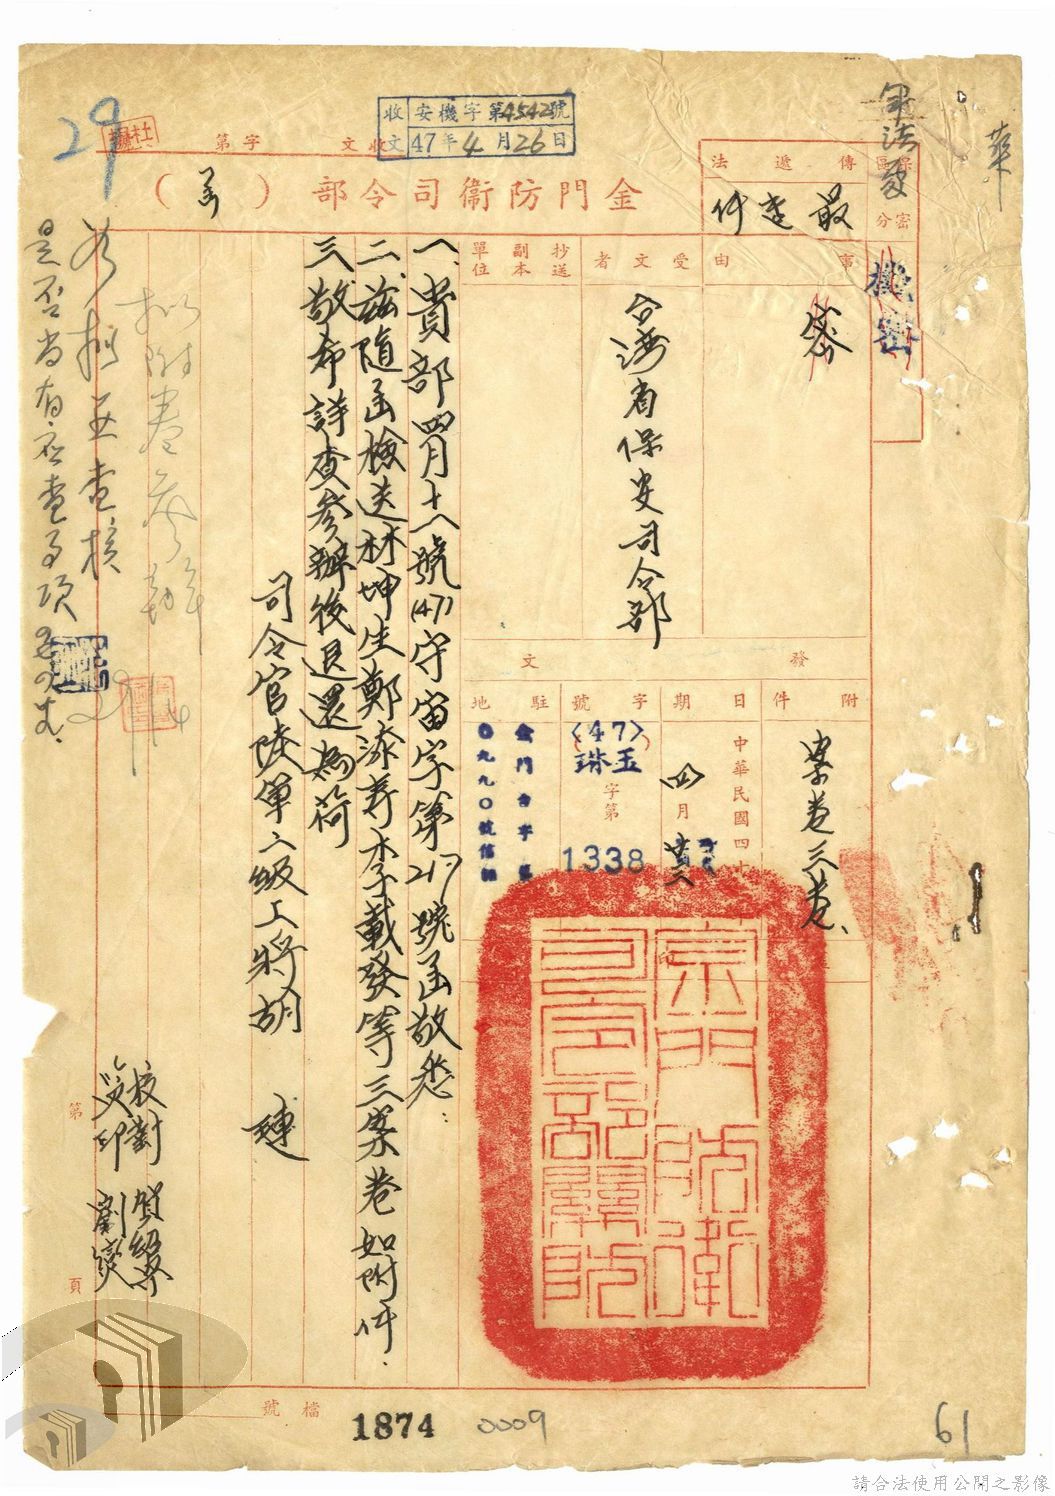 29
收文 安機字第4542號
47年4月26日
收文 字第
金門防衛司令部（函）
保密區分
機密
軍法處
傳遞法
最速件
事由
密
受文者
台灣省保安司令部
抄送副本單位
發文
附件
案卷三卷、
日期
中華民國四十
四月廿三
字號
(47)
珠玉
字第
1338
駐地
金門台字第
〇九九〇號信箱
一、貴部四月十八號(47)守宙字第217號函敬悉：
二、茲隨函檢送林坤生鄭添壽李載發等三案卷如附件．
三、敬希詳查參辦後退還為荷
司令官陸軍二級上將胡 璉
金門防衛司令部關防
擬附卷
並查核
是否尚有應查事項
校對
監印 劉
第 頁
檔號
1874
0009
61
請合法使用公開之影像